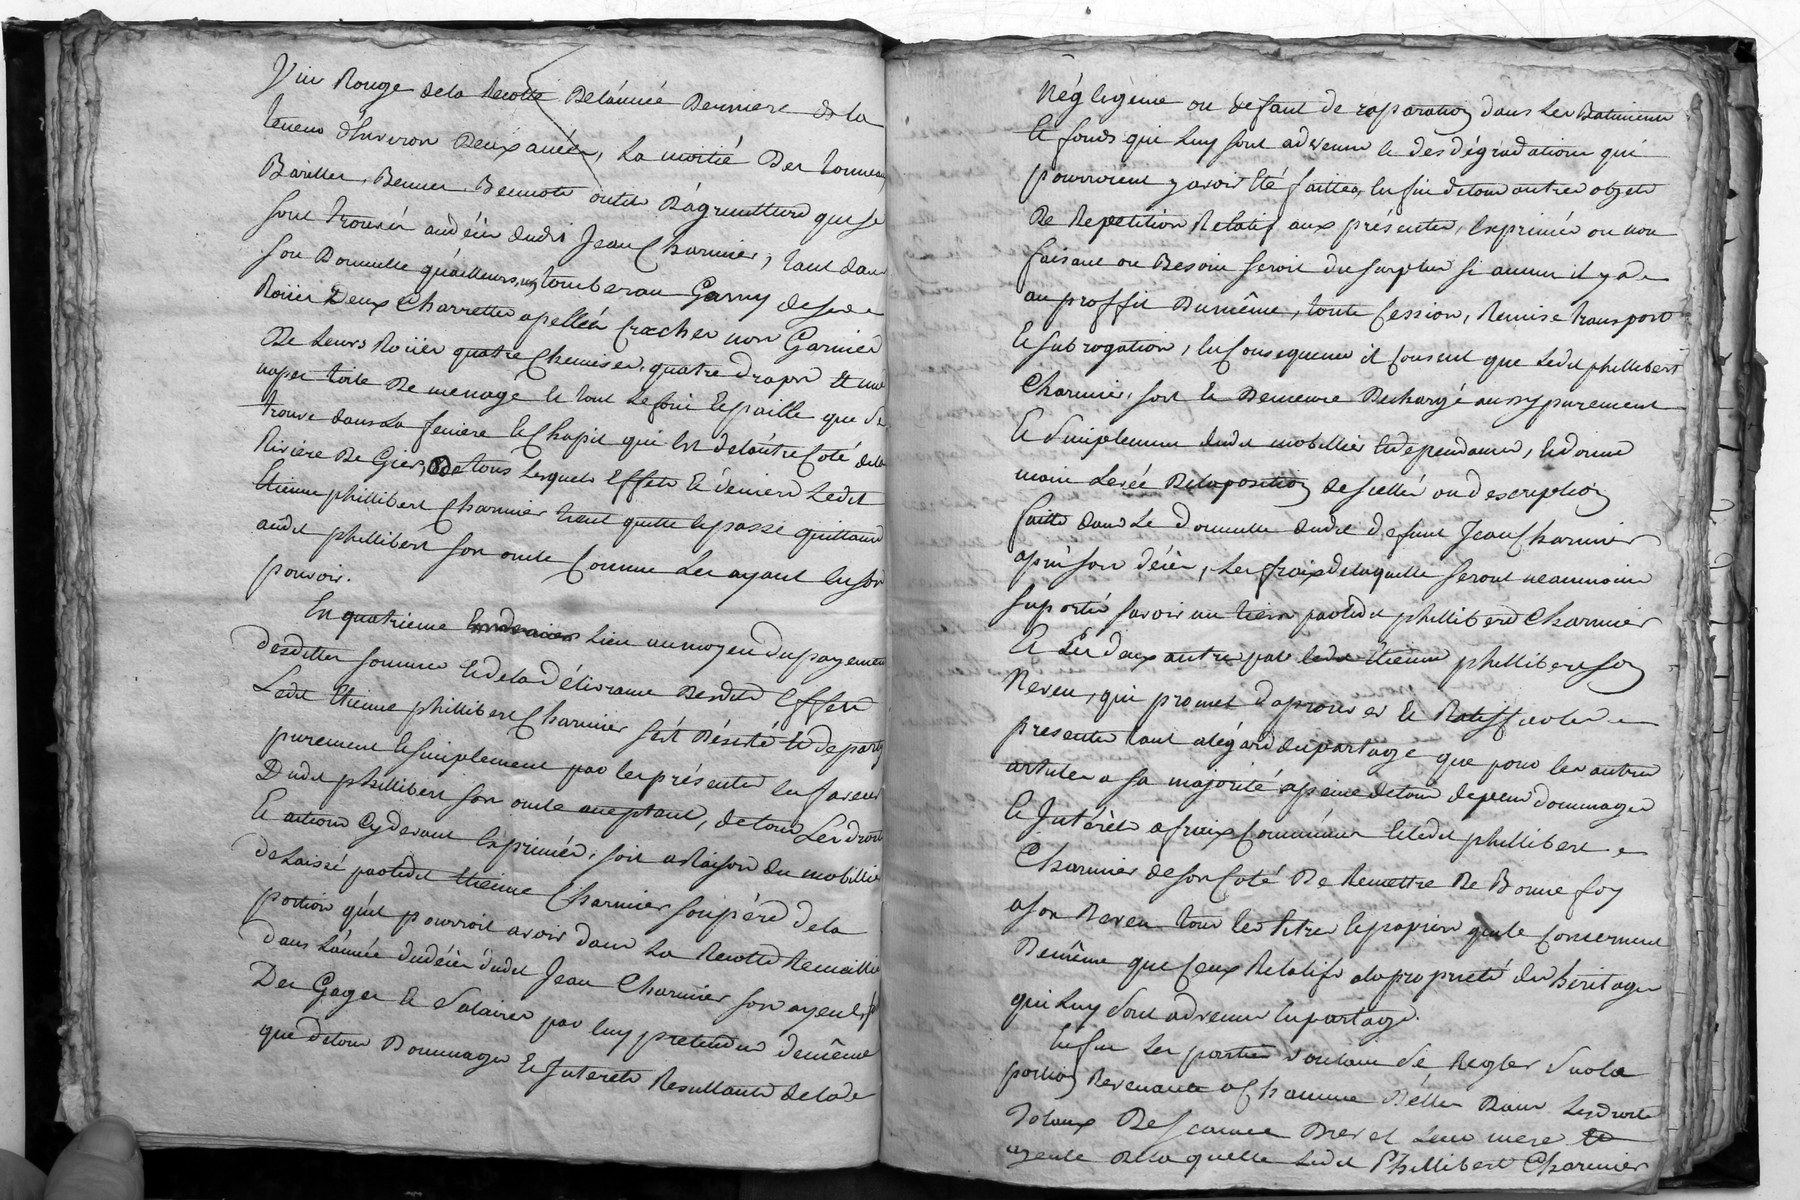 Vin Rouge dela Recolte Delánnée Derniere de la
teneur d'Environ Deux anées, La moitié Des tonneaux
Barilles, Bennes, Bennots outils D'ágriculture qui se
sont trouvés audécés dudit Jean Charmier, tant dans
son Domicille qu'ailleurs, un tomberau Garny desede
Roües Deux Charrettes apellées Crocher non Garnies
De Leurs Roües quatre Chemises, quatre draps Et une
nape toile De menage le tout Lefoin Lepaille que se
trouve dansLa feniere Le Chapit qui Est delaútre Coté dela
Riviere De Gier, De tous Lesquels Effets Et déniers Ledit
Etienne phillibert Charmier tient quitte Et passe quittance
audit phillibert son oncle Comme Les ayant En son
pouvoir.
En quatrieme Lieu aumoyen du payement
desdittes sommes Et dela délivrance Desdits Effets
Ledit Etienne phillibert Charmier s'est Désisté Et departy
purement Et simplement par les présentes En faveur
Dudit phillibert son oncle acceptant, detous Les droits
Et actions Cydevant Exprimés, soit a Raison du mobillier
delaissé parledit Etienne Charmier sonpére dela
portion qu'il pourroit avoir dans La Recolte Recueillie
dans L'année dudécés dudit Jean Charmier son ayeul
Des Gages Et Salaires par luy pretendus demême
que detous Dommages Et Interêts Resultants delade
Négligence ou defaut de reparation dans Les Batiments
Et fonds qui Luy sont advenus Et des dégradations qui
pourroient y avoir Eté faittes, Enfin detous autres objets
De Repetition Relatifs aux présentes, Exprimés ou non
faisant ou Besoin seroit du surplus si aucun il y a
au proffit Dumême, toute Cession, Remise transport
Et subrogation, En Consequence il Consent que Ledit phillibert
Charmier, soit Et Demeure Dechargé aussy purement
Et Simplement dudit mobillier Et dependances, Et donne
main Levée Delaposition de scellés ou description
faitte dans Le domicille dudit defunt Jean Charmier
après son décés, Les frais delaquelle seront neanmoins
suportés savoir un tiers par Ledit phillibert Charmier
Et Les deux autres par ledit Etienne phillibert son
Neveu, qui promet d'aprouver Et Ratiffier les
presentes tant alégard dupartage que pour les autres
articles a sa majorité apeine de tous depens dommages
Et Intérêts Et Ledit phillibert
Charmier deson Coté De Remettre De Bonne foy
a son Neveu tous les titres Et papiers qui le Concernent
Demême que Ceux Relatifs ala propriété des héritages
qui Luy sont advenus En partage.
Enfin Les parties voulant se Regler Sur la
portion Revenante a Chacune D'elles Dans Les droits
dotaux De feue Leur mere Et
ayeule De la quelle Ledit Phillibert Charmier